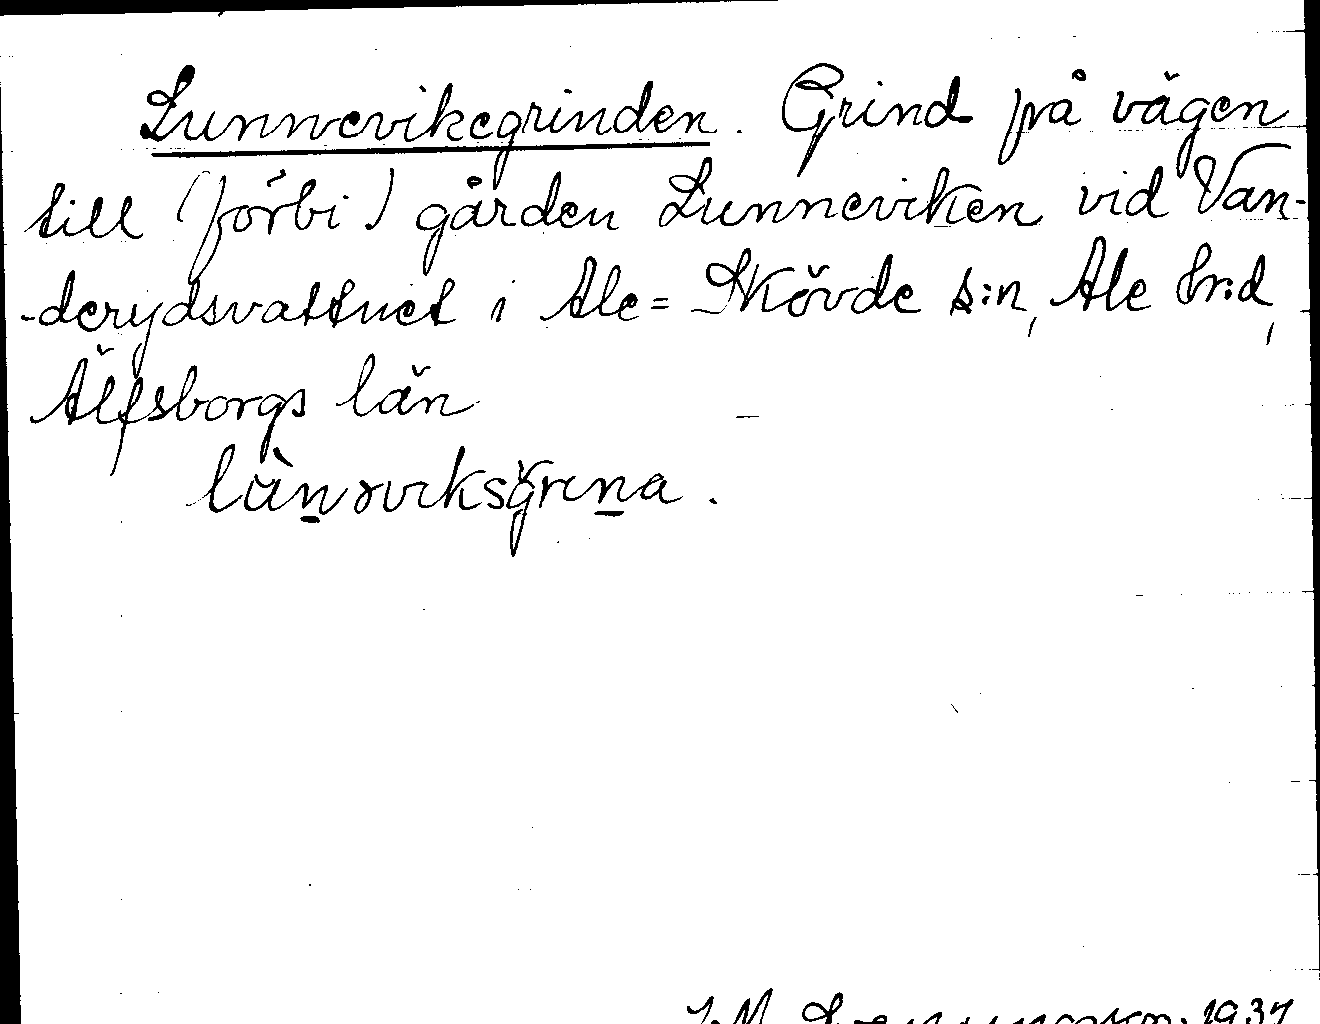 Lunnevikegrinden. Grind på vägen
till (förbi) gården Lunneviken vid Van-
-derydsvattnet i Ale=Skövde s:n, Ale hr:d,
Älfsborgs län
1937